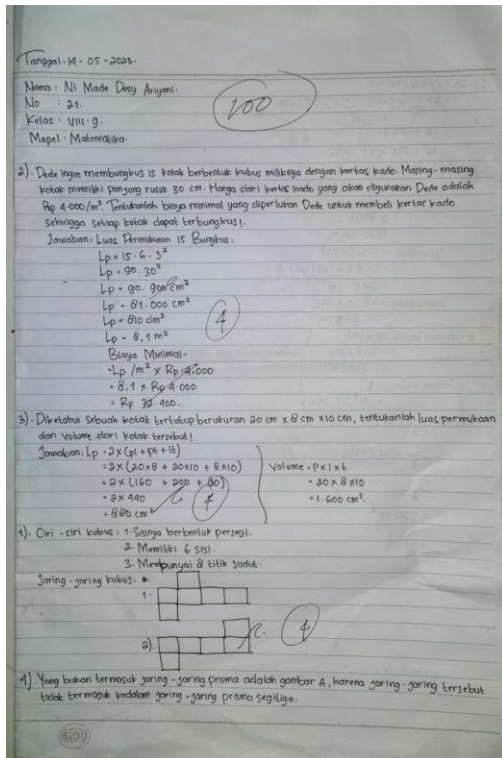 Tanggal: 14 - 05 - 2023.
Nama : Ni Made Desy Ariyani.
No : 21.
Kelas : VIII-g.
Mapel : Matematika.
100
2). Dede ingin membungkus 15 kotak berbentuk kubus miliknya dengan kertas kado. Masing-masing
kotak memiliki panjang rusuk 30 cm. Harga dari kertas kado yang akan digunakan Dede adalah
Rp 4.000/m². Tentukanlah biaya minimal yang diperlukan Dede untuk membeli kertas kado
sehingga setiap kotak dapat terbungkus!.
Jawaban: Luas Permukaan 15 Bungkus:
Lp = 15 . 6 . s²
Lp = 90 . 30²
Lp = 90 . 900 cm²
Lp = 81.000 cm²
Lp = 810 dm²
Lp = 8,1 m²
4
Biaya Minimal.
= Lp /m² x Rp 4.000
= 8,1 x Rp 4.000
= Rp 32.400.
3). Diketahui Sebuah kotak tertutup berukuran 20 cm x 8 cm x 10 cm, tentukanlah luas permukaan
dan volume dari kotak tersebut!
Jawaban: Lp = 2x (pl + pt + lt)
= 2x (20x8 + 20x10 + 8x10)
= 2x (160 + 200 + 80)
= 2x 440
= 880 cm²
4
Volume = P x l x t
= 20 x 8 x 10
= 1.600 cm³.
1). Ciri - ciri kubus : 1. Sisinya berbentuk persegi.
2. Memiliki 6 sisi.
3. Mempunyai 8 titik sudut.
Jaring - jaring kubus :
1.
2).
4
4). Yang bukan termasuk jaring - jaring prisma adalah gambar A, karena jaring - jaring tersebut
tidak termasuk kedalam jaring - jaring prisma segitiga.
SIDU